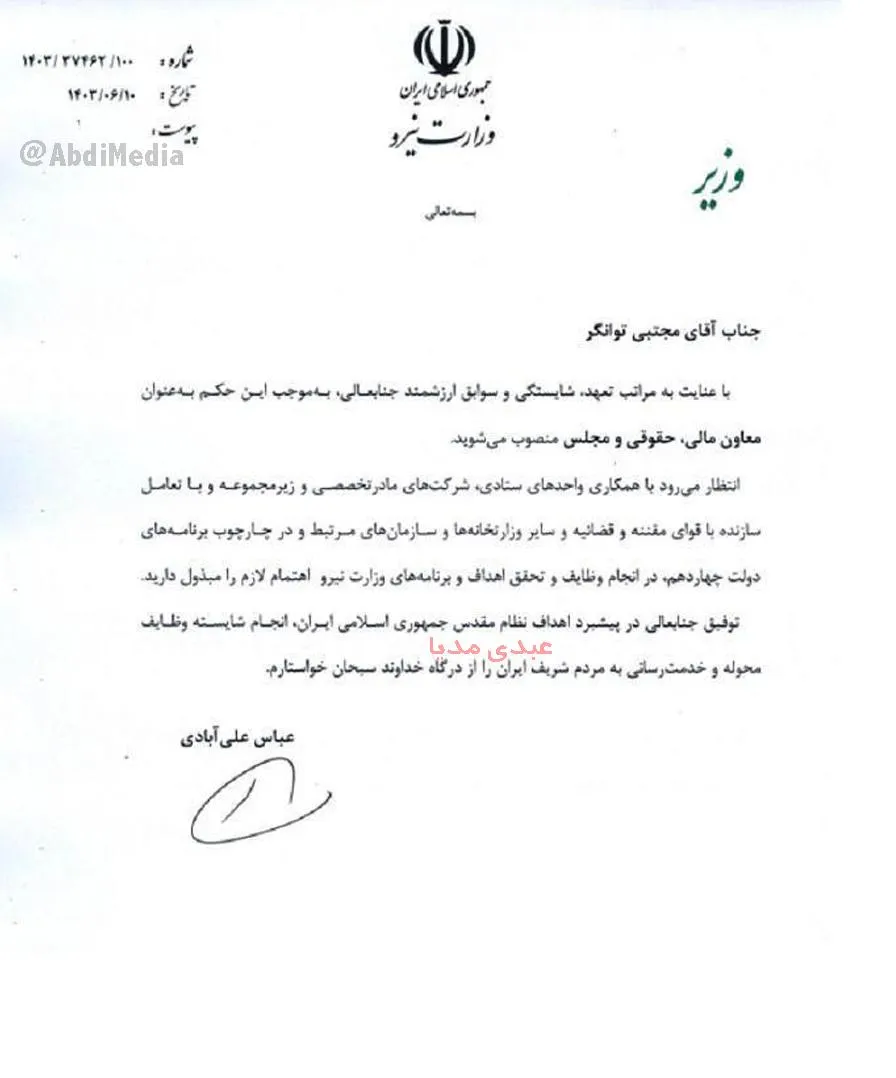 جمهوری اسلامی ایران
وزارت نیرو
شماره: ۱۴۰۳/۲۷۴۶۲/۱۰۰
تاریخ: ۱۴۰۳/۰۶/۱۰
پیوست:
@AbdiMedia
وزیر
بسمه‌تعالی
جناب آقای مجتبی توانگر
با عنایت به مراتب تعهد، شایستگی و سوابق ارزشمند جنابعالی، به‌موجب این حکم به‌عنوان
معاون مالی، حقوقی و مجلس منصوب می‌شوید.
انتظار می‌رود با همکاری واحدهای ستادی، شرکت‌های مادرتخصصی و زیرمجموعه و با تعامل
سازنده با قوای مقننه و قضائیه و سایر وزارتخانه‌ها و سازمان‌های مرتبط و در چارچوب برنامه‌های
دولت چهاردهم، در انجام وظایف و تحقق اهداف و برنامه‌های وزارت نیرو اهتمام لازم را مبذول دارید.
توفیق جنابعالی در پیشبرد اهداف نظام مقدس جمهوری اسلامی ایران، انجام شایسته وظایف
عبدی مدیا
محوله و خدمت‌رسانی به مردم شریف ایران را از درگاه خداوند سبحان خواستارم.
عباس علی‌آبادی